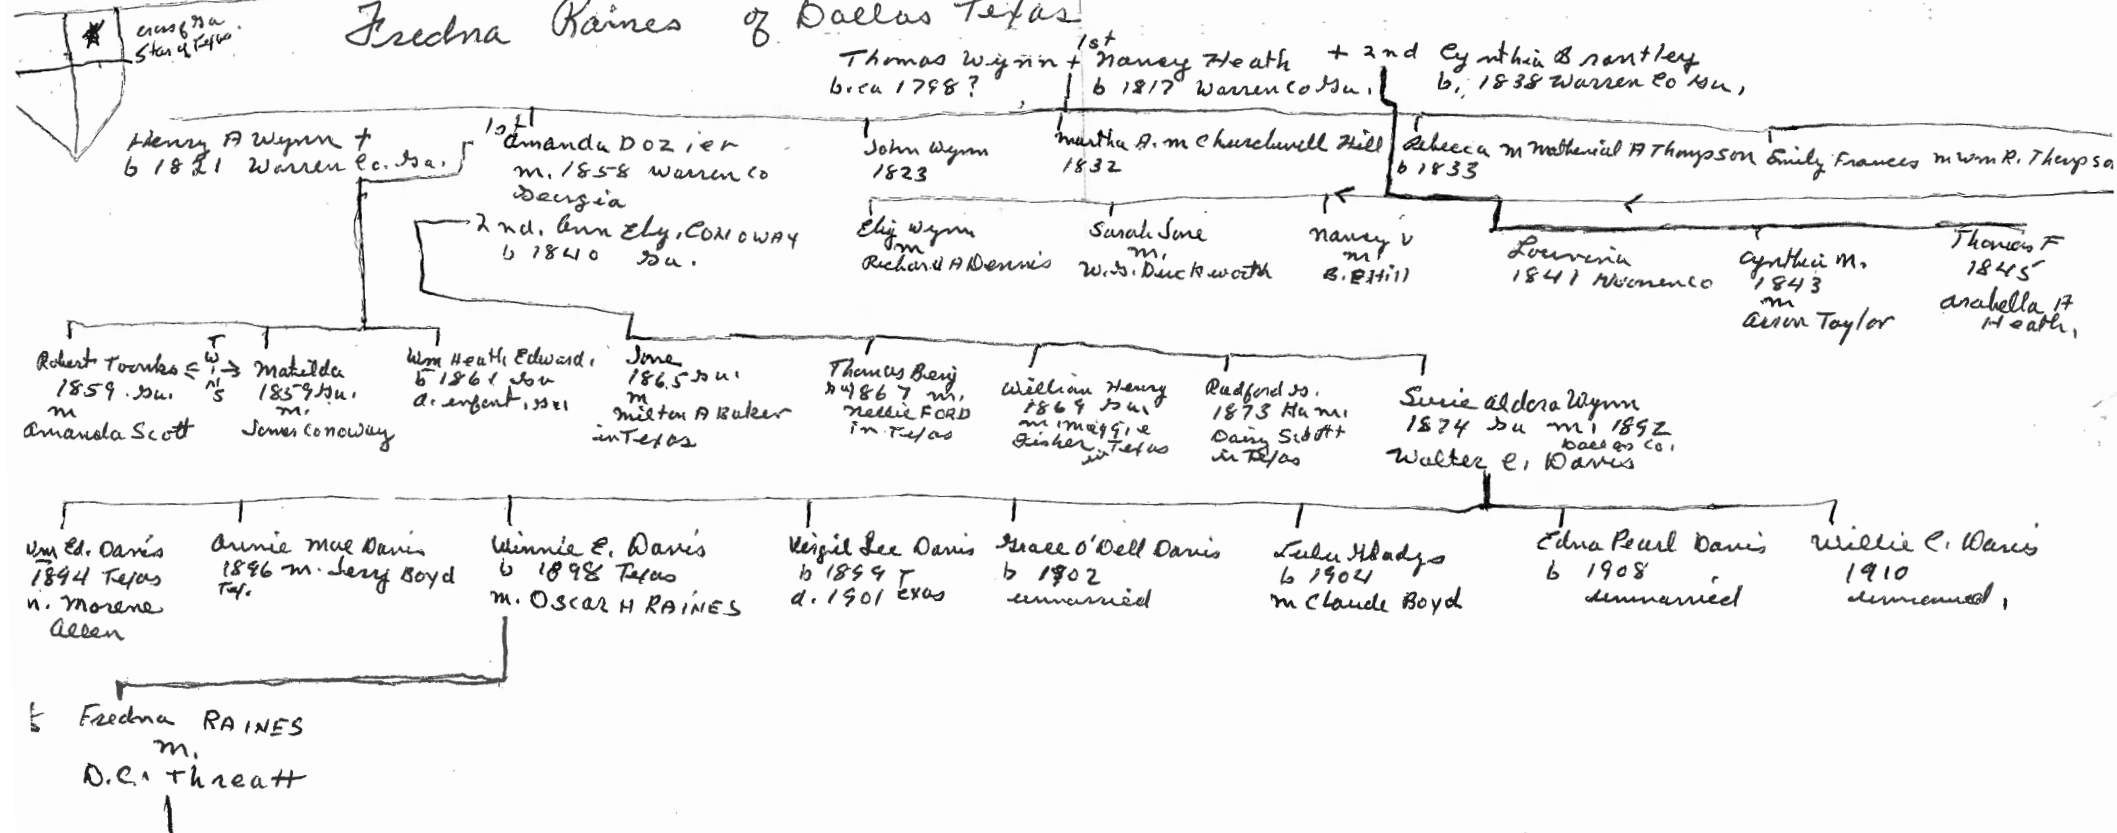 Fredna Raines of Dallas Texas
cross of Ga
Star of Texas
Thomas Wynn + 1st Nancy Heath + 2nd Cynthia Brantley
b. ca 1798? b 1817 Warren Co Ga. b. 1838 Warren Co Ga.
Henry A Wynn +
b 1821 Warren Co. Ga.
1st Amanda Dozier
m. 1858 Warren Co
Georgia
2nd. Ann Eliz. CONOWAY
b 1840 Ga.
John Wynn
1823
Martha A. m Churchwell Hill
1832
Rebecca m Matherial A Thompson
b 1833
Emily Frances m Wm R. Thompso
Eliz Wynn
m
Richard A Dennis
Sarah Jane
m.
W.G. Duckworth
Nancy V
m
B. E Hill
Louvinia
1841 Warren Co
Cynthia M.
1843
m
Arson Taylor
Thomas F
1845
Arabella A
Heath.
Robert Toombs
1859. Ga.
m
Amanda Scott
TWINS
Matilda
1859 Ga.
m.
James Conoway
Wm Heath Edward.
b 1861 Ga
d. infant. Ga
Jane
1865 Ga.
m
Milton A Baker
in Texas
Thomas Benj
1867 m.
Nellie FORD
in Texas
William Henry
1869 Ga.
m. Maggie
Fisher in Texas
Radford G.
1873 Ga m.
Daisy Scott
in Texas
Susie Aldora Wynn
1874 Ga m. 1892
Dallas Co.
Walter C. Davis
Wm Ed. Davis
1894 Texas
m. Morene
Allen
Annie Mae Davis
1896 m. Jery Boyd
Tex.
Winnie E. Davis
b 1898 Texas
m. OSCAR H RAINES
Virgil Lee Davis
b 1899 Texas
d. 1901
Grace O'Dell Davis
b 1902
unmarried
Lula Gladys
b 1904
m Claude Boyd
Edna Pearl Davis
b 1908
unmarried
Willie C. Davis
1910
unmarried.
Fredna RAINES
m.
D.C. Threatt